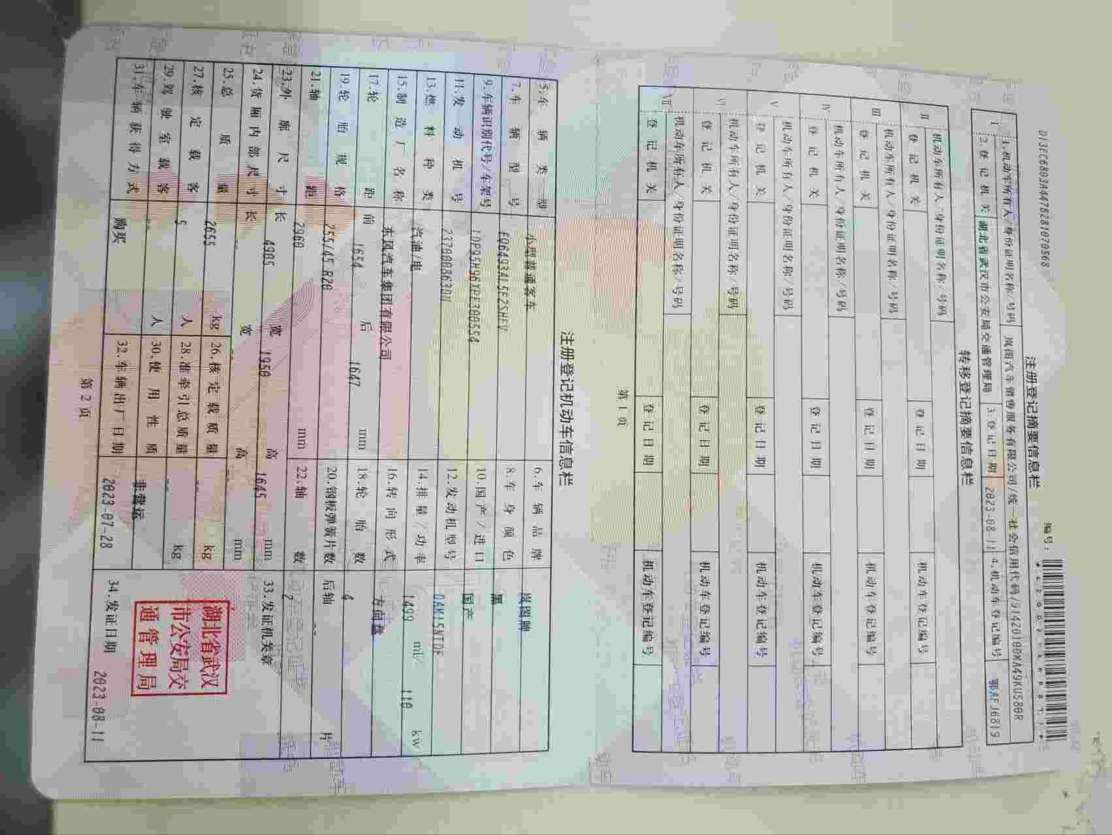 注册登记摘要信息栏
编号:
013EC6803A4478281070568
1.机动车所有人/身份证明名称/号码 岚图汽车销售服务有限公司/统一社会信用代码/91420100MA49KU580R
2.登记机关 湖北省武汉市公安局交通管理局 3.登记日期 2023-08-11 4.机动车登记编号 鄂AFJ6819
转移登记摘要信息栏
II 机动车所有人/身份证明名称/号码
登记机关 登记日期 机动车登记编号
III 机动车所有人/身份证明名称/号码
登记机关 登记日期 机动车登记编号
IV 机动车所有人/身份证明名称/号码
登记机关 登记日期 机动车登记编号
V 机动车所有人/身份证明名称/号码
登记机关 登记日期 机动车登记编号
VI 机动车所有人/身份证明名称/号码
登记机关 登记日期 机动车登记编号
VII 机动车所有人/身份证明名称/号码
登记机关 登记日期 机动车登记编号
第1页
注册登记机动车信息栏
5.车辆类型 小型普通客车 6.车辆品牌 岚图牌
7.车辆型号 8.车身颜色 黑
9.车辆识别代号/车架号 10.国产/进口 国产
11.发动机号 12.发动机型号 DAM15NTDE
13.燃料种类 汽油/电 14.排量/功率 1499 ml/ 110 kw
15.制造厂名称 东风汽车集团有限公司 16.转向形式 方向盘
17.轮距 前 1654 后 1647 mm 18.轮胎数 4
19.轮胎规格 255/45 R20 20.钢板弹簧片数 后轴 片
21.轴距 2960 mm 22.轴数 2
23.外廓尺寸 长 4905 宽 1950 高 1645 mm 33.发证机关章
24.货厢内部尺寸 长 宽 高 mm
25.总质量 2655 kg 26.核定载质量 kg
27.核定载客 5 人 28.准牵引总质量 kg
29.驾驶室载客 人 30.使用性质 非营运
31.车辆获得方式 购买 32.车辆出厂日期 2023-07-28 34.发证日期 2023-08-11
湖北省武汉
市公安局交
通管理局
第2页